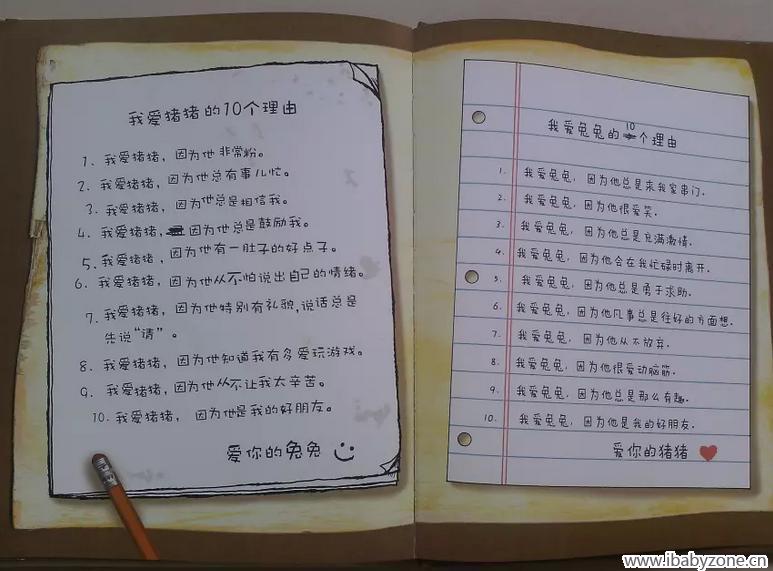 我爱猪猪的10个理由
1. 我爱猪猪，因为他非常粉。
2. 我爱猪猪，因为他总有事儿忙。
3. 我爱猪猪，因为他总是相信我。
4. 我爱猪猪，因为他总是鼓励我。
5. 我爱猪猪，因为他有一肚子的好点子。
6. 我爱猪猪，因为他从不怕说出自己的情绪。
7. 我爱猪猪，因为他特别有礼貌，说话总是
先说“请”。
8. 我爱猪猪，因为他知道我有多爱玩游戏。
9. 我爱猪猪，因为他从不让我太辛苦。
10. 我爱猪猪，因为他是我的好朋友。
爱你的兔兔
我爱兔兔的10个理由
1. 我爱兔兔，因为他总是来我家串门。
2. 我爱兔兔，因为他很爱笑。
3. 我爱兔兔，因为他总是充满激情。
4. 我爱兔兔，因为他会在我忙碌时离开。
5. 我爱兔兔，因为他总是勇于求助。
6. 我爱兔兔，因为他凡事总是往好的方面想。
7. 我爱兔兔，因为他从不放弃。
8. 我爱兔兔，因为他很爱动脑筋。
9. 我爱兔兔，因为他总是那么有趣。
10. 我爱兔兔，因为他是我的好朋友。
爱你的猪猪
www.ibabyzone.cn